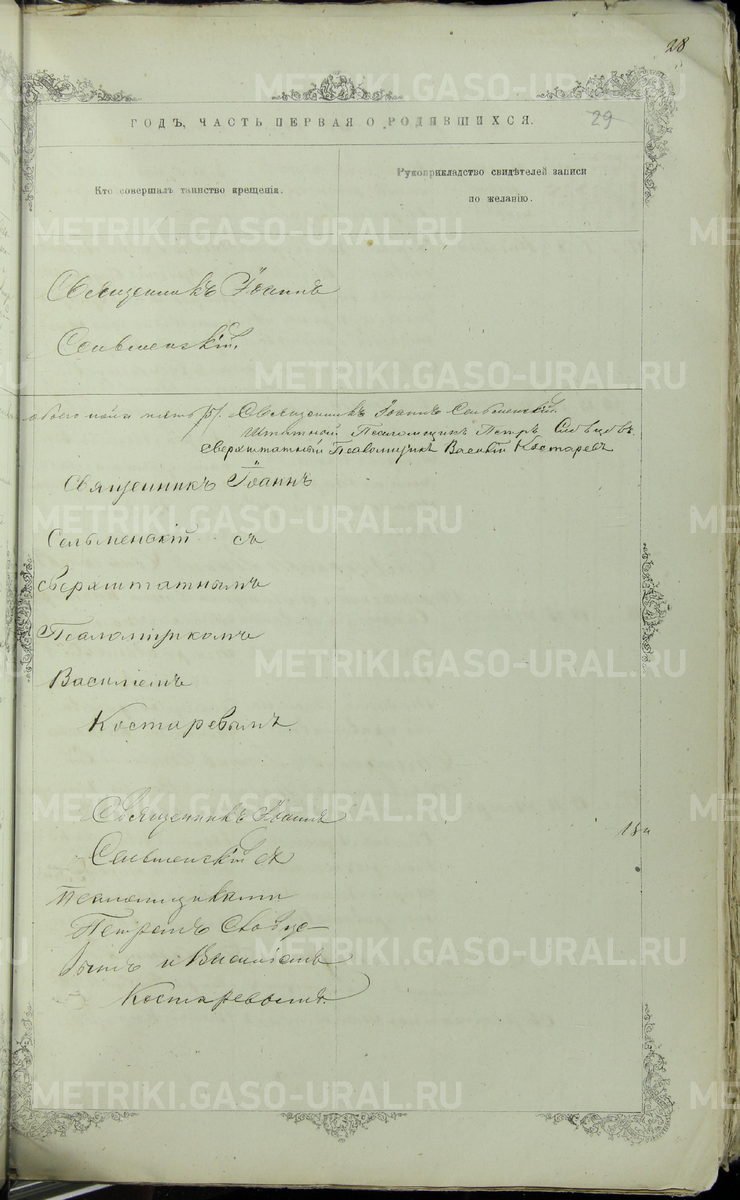 28
ГОДЪ, ЧАСТЬ ПЕРВАЯ О РОДИВШИХСЯ.
29
Кто совершалъ таинство крещенія.
Рукоприкладство свидѣтелей записи
по желанію.
Священникъ Іоаннъ
Сельменскій.
обоего пола пять /5/. Священникъ Іоаннъ Сельменскій.
Штатный Псаломщикъ Петръ Словцовъ.
Сверхштатный Псаломщикъ Василій Костаревъ
Священникъ Іоаннъ
Сельменскій съ
сверхштатнымъ
Псаломщикомъ
Василіемъ
Костаревымъ.
Священникъ Іоаннъ
Сельменскій съ
псаломщиками
Петромъ Словцо-
вымъ и Василіемъ
Костаревымъ.
METRIKI.GASO-URAL.RU